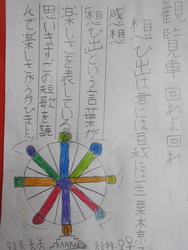 観覧車 回れよ回れ
想ひ出は君には一日我には一生 栗木京
感想
想ひ出という言葉が
楽しさを表している
思います の短歌を読
んで楽しさがうかびました。